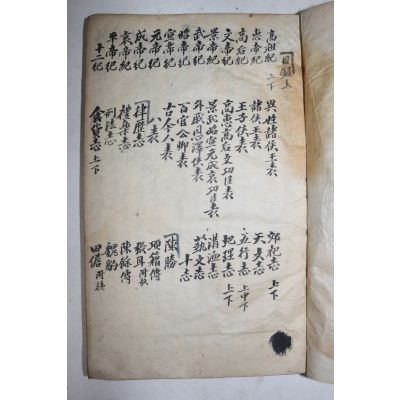 目録上
高祖紀 上下
惠帝紀
高后紀
文帝紀
景帝紀
武帝紀
昭帝紀
宣帝紀
元帝紀
成帝紀
哀帝紀
平帝紀
十二紀
異姓諸侯王表
諸侯王表
王子侯表
高惠高后文功臣表
景武昭宣元成哀功臣表
外戚恩澤侯表
百官公卿表
古今人表
八表
律歷志
禮樂志
刑法志
食貨志 上下
郊祀志 上下
天文志
五行志 上中下
地理志 上下
溝洫志
藝文志
十志
陳勝
項籍傳
張耳 附敖
陳餘傳
魏豹
田儋 附